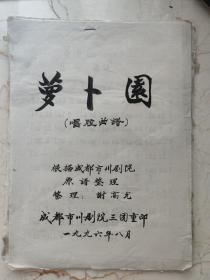 萝卜園
(唱腔曲谱)
根据成都市川剧院
原谱整理
整理：谢高光
成都市川剧院三团重印
一九九六年八月